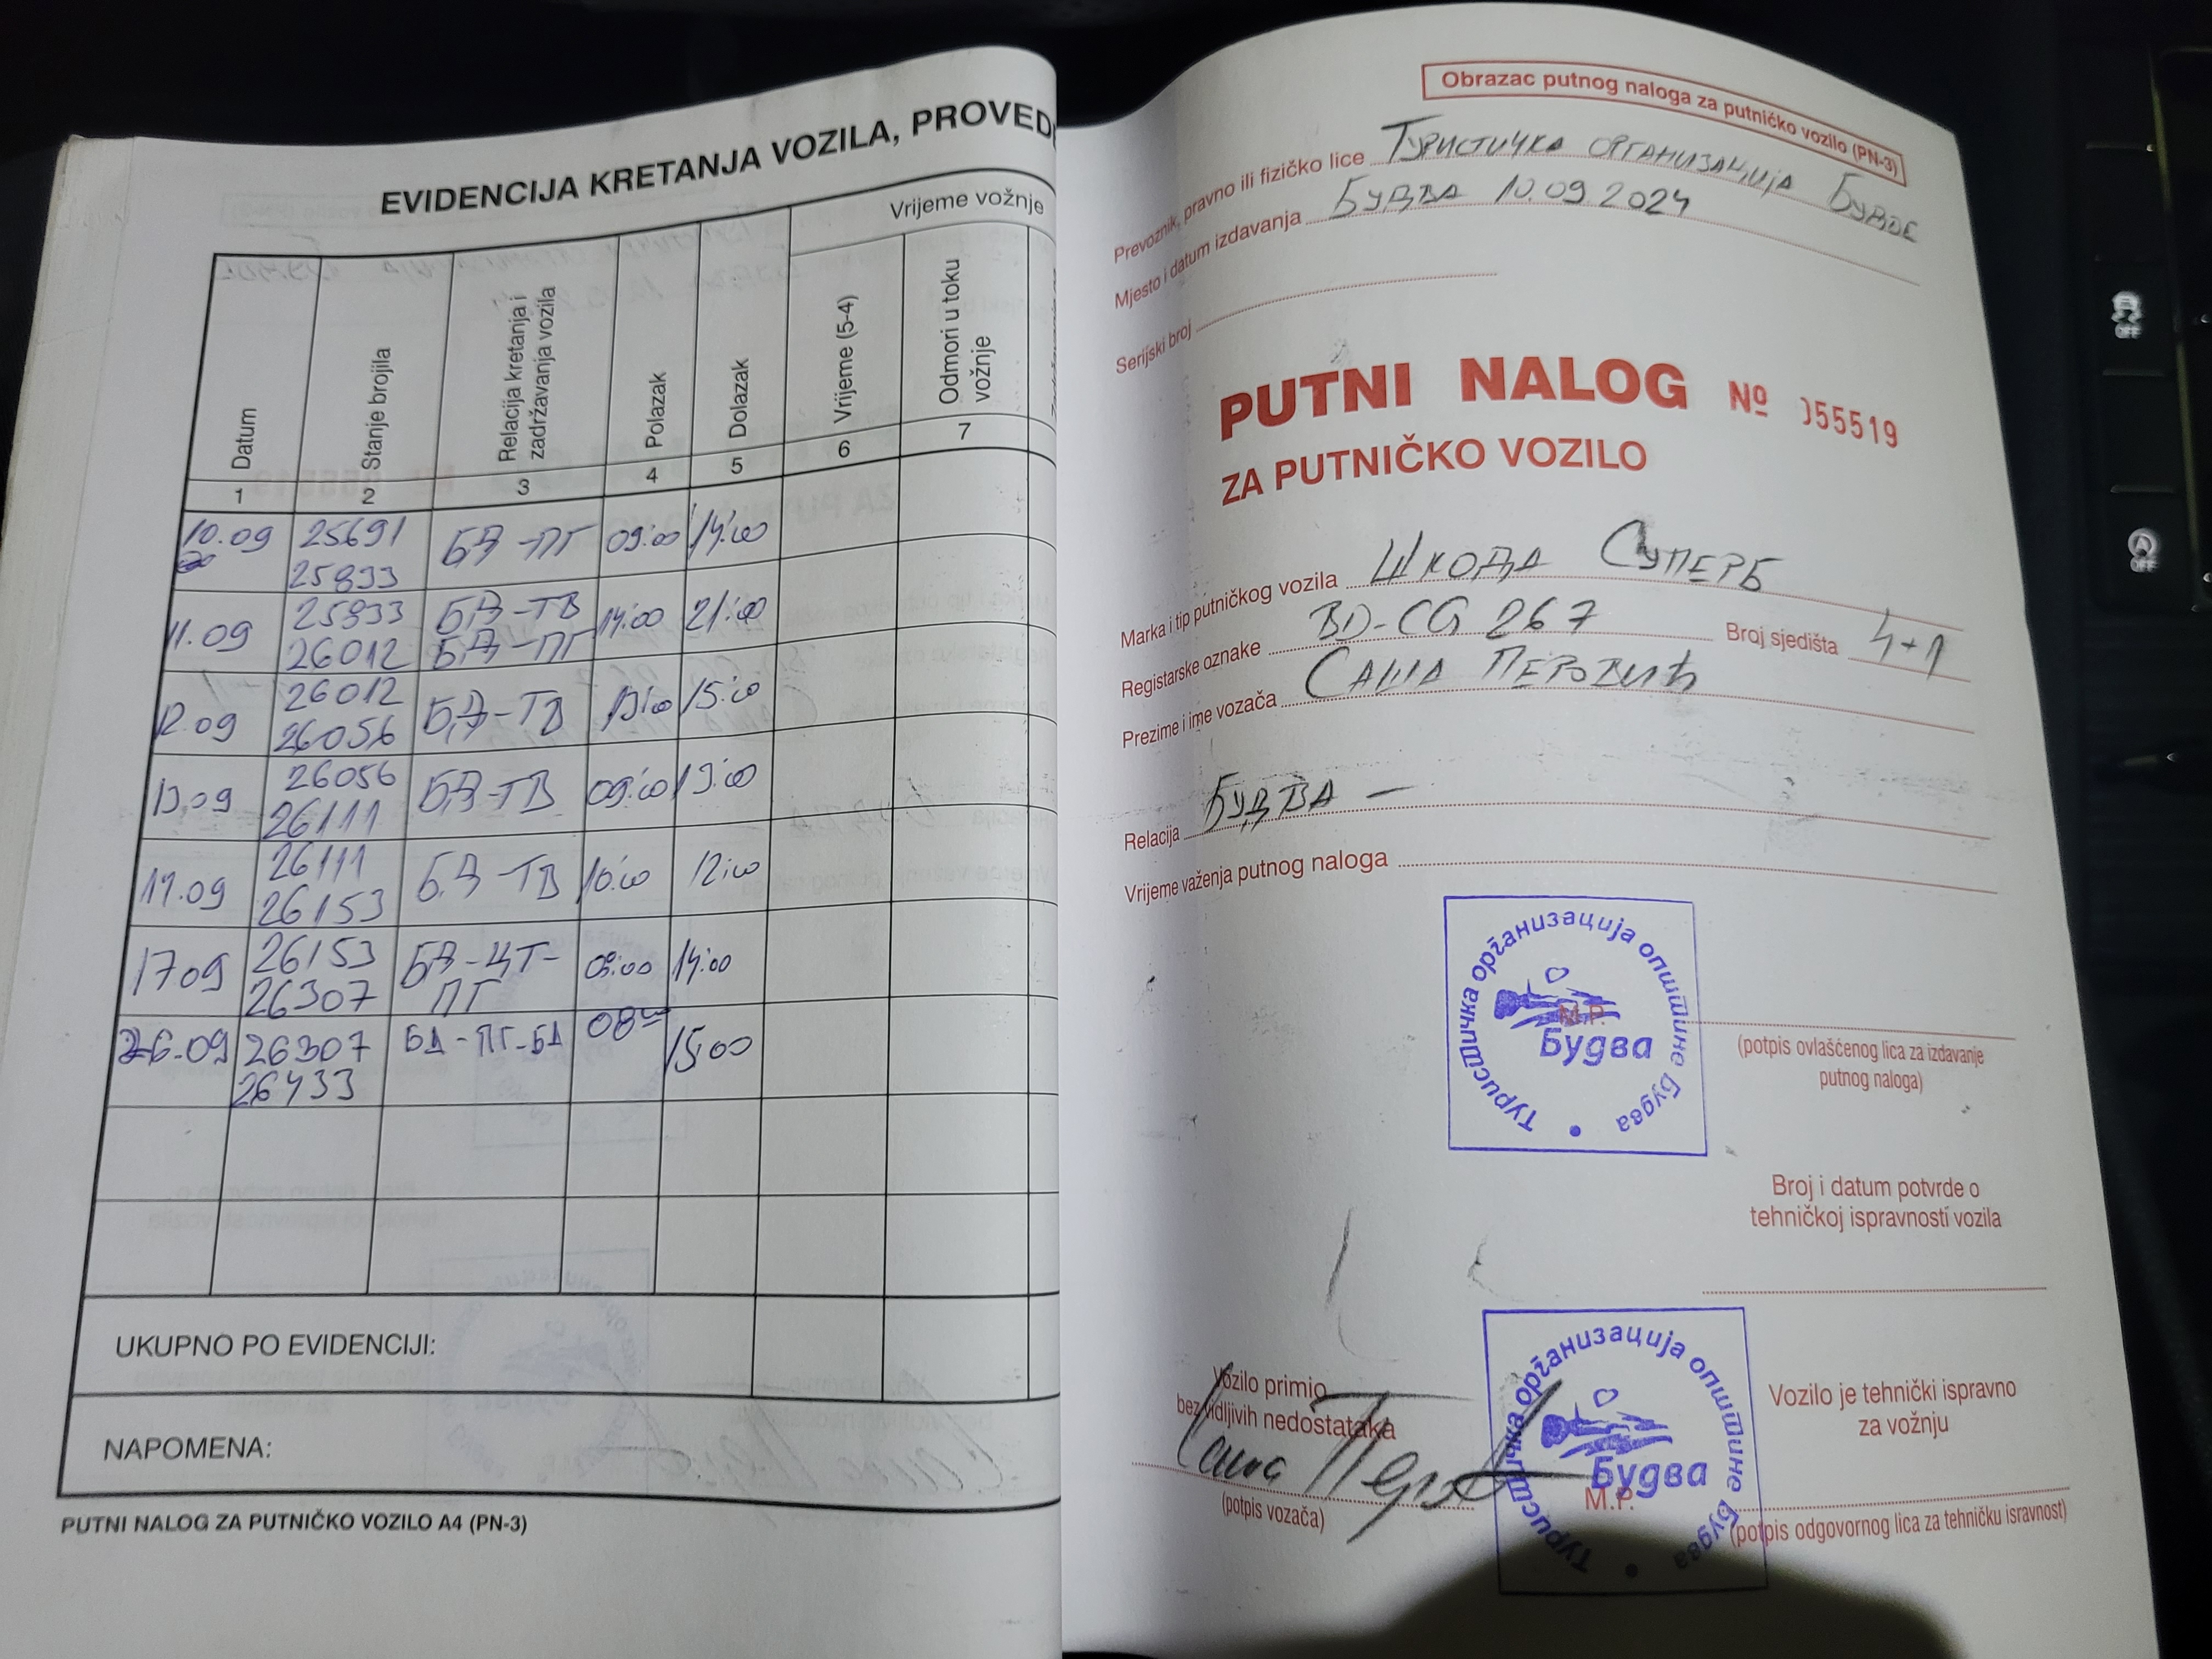 EVIDENCIJA KRETANJA VOZILA, PROVED
Datum
Stanje brojila
Relacija kretanja i zadržavanja vozila
Polazak
Dolazak
Vrijeme vožnje
Vrijeme (5-4)
Odmori u toku vožnje
1 2 3 4 5 6 7
10.09 25691 БД-ПГ 09:00 14:00
25833
11.09 25833 БД-ТВ 14:00 21:00
26012 БД-ПГ
12.09 26012 БД-ТВ 13:00 15:00
26056
13.09 26056 БД-ТВ 09:00 13:00
26111
26111 БД-ТВ 10:00 12:00
26153
17.09 26153 БД-ЦТ- 14:00
26307 ПГ
26.09 26307 БД-ПГ-БД 08⁰⁰ 15:00
26433
UKUPNO PO EVIDENCIJI:
NAPOMENA:
PUTNI NALOG ZA PUTNIČKO VOZILO A4 (PN-3)
Obrazac putnog naloga za putničko vozilo (PN-3)
Prevoznik, pravno ili fizičko lice Туристичка организација Будве
Mjesto i datum izdavanja Будва 10.09 2024
Serijski broj
PUTNI NALOG № 055519
ZA PUTNIČKO VOZILO
Marka i tip putničkog vozila Шкода Суперб
Registarske oznake BD-CG 267 Broj sjedišta 4+1
Prezime i ime vozača Саша Перовић
Relacija Будва -
Vrijeme važenja putnog naloga
Туристичка организација општине Будва
Будва
M.P.
(potpis ovlašćenog lica za izdavanje
putnog naloga)
Broj i datum potvrde o
tehničkoj ispravnosti vozila
Vozilo primio
bez vidljivih nedostataka
Саша Перов
(potpis vozača)
Туристичка организација општине Будва
Будва
M.P.
Vozilo je tehnički ispravno
za vožnju
(potpis odgovornog lica za tehničku isravnost)
OFF
OFF